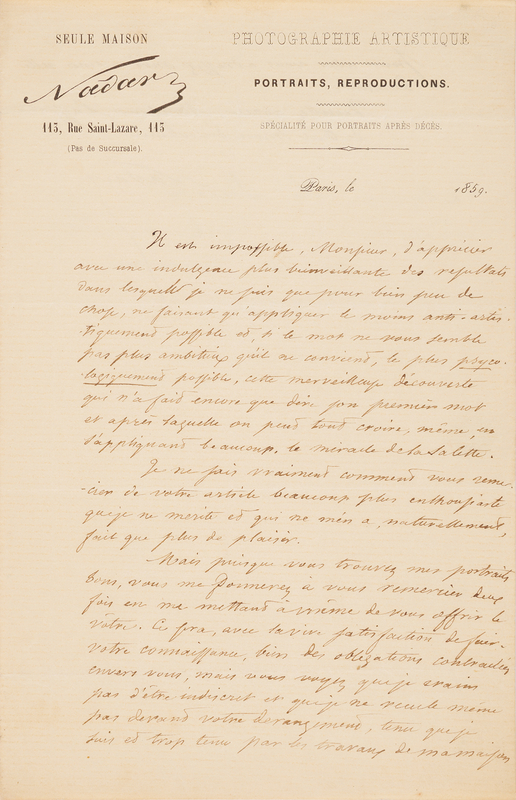 SEULE MAISON
Nadar
113, Rue Saint-Lazare, 113
(Pas de Succursale).
PHOTOGRAPHIE ARTISTIQUE
PORTRAITS, REPRODUCTIONS.
SPÉCIALITÉ POUR PORTRAITS APRÈS DÉCÈS.
Paris, le 1859.
Il est impossible, Monsieur, d'apprécier
avec une indulgence plus bienveillante des résultats
dans lesquels je ne suis que pour bien peu de
chose, ne faisant qu'appliquer le moins anti-artis-
-tiquement possible et, si le mot ne vous semble
pas plus ambitieux qu'il ne convient, le plus psyco-
-logiquement possible, cette merveilleuse découverte
qui n'a fait encore que dire son premier mot
et après laquelle on peut tout croire, même, en
s'appliquant beaucoup, le miracle de la Salette.
Je ne sais vraiment comment vous remer-
-cier de votre article beaucoup plus enthousiaste
que je ne mérite et qui ne m'en a, naturellement,
fait que plus de plaisir.
Mais puisque vous trouvez mes portraits
bons, vous me donnerez à vous remercier deux
fois en me mettant à même de vous offrir le
vôtre. Ce sera, avec la vive satisfaction de faire
votre connaissance, bien des obligations contractées
envers vous, mais vous voyez que je crains
pas d'être indiscret et que je ne recule même
pas devant votre dérangement, tenu que je
suis et trop tenu par les travaux de ma maison